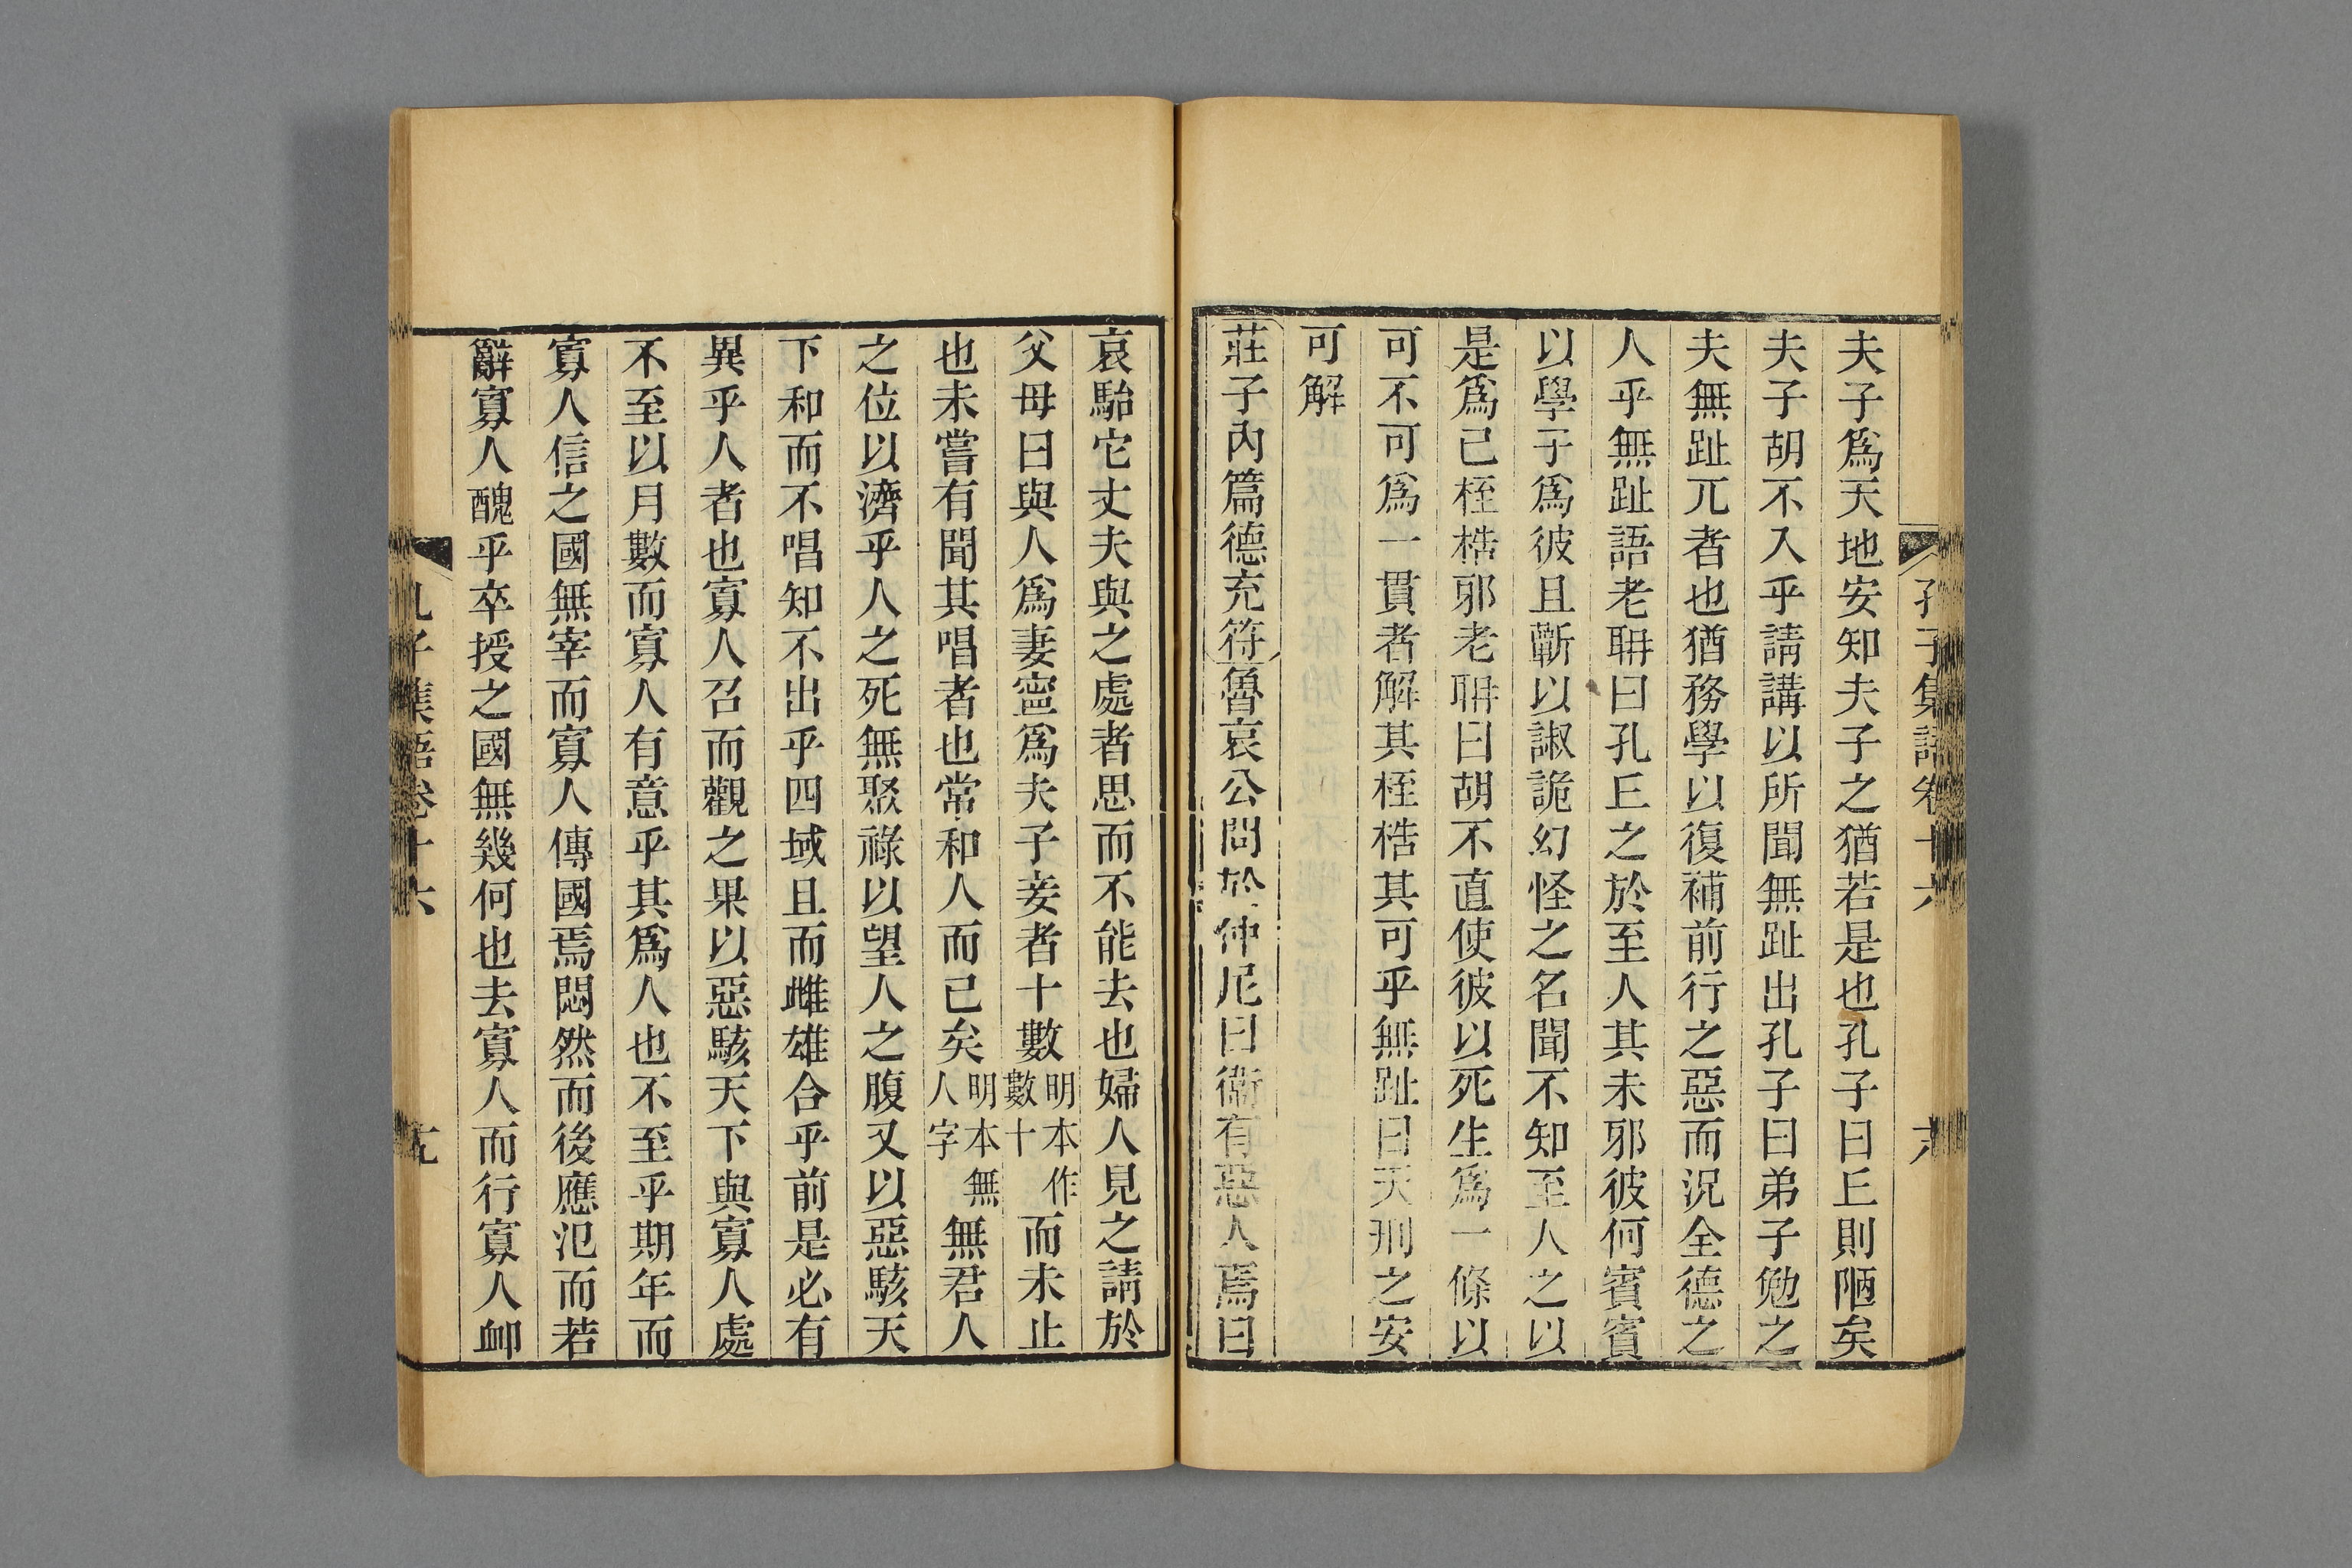 孔子集語卷十六
夫子爲天地安知夫子之猶若是也孔子曰丘則陋矣
夫子胡不入乎請講以所聞無趾出孔子曰弟子勉之
夫無趾兀者也猶務學以復補前行之惡而況全德之
人乎無趾語老聃曰孔丘之於至人其未邪彼何賓賓
以學子爲彼且蘄以諔詭幻怪之名聞不知至人之以
是爲己桎梏邪老聃曰胡不直使彼以死生爲一條以
可不可爲一貫者解其桎梏其可乎無趾曰天刑之安
可解
莊子內篇德充符魯哀公問於仲尼曰衞有惡人焉曰
哀駘它丈夫與之處者思而不能去也婦人見之請於
父母曰與人爲妻寧爲夫子妾者十數明本作數十而未止
也未嘗有聞其唱者也常和人而已矣明本無人字無君人
之位以濟乎人之死無聚祿以望人之腹又以惡駭天
下和而不唱知不出乎四域且而雌雄合乎前是必有
異乎人者也寡人召而觀之果以惡駭天下與寡人處
不至以月數而寡人有意乎其爲人也不至乎期年而
寡人信之國無宰而寡人傳國焉悶然而後應氾而若
辭寡人醜乎卒授之國無幾何也去寡人而行寡人卹
孔子集語卷十六